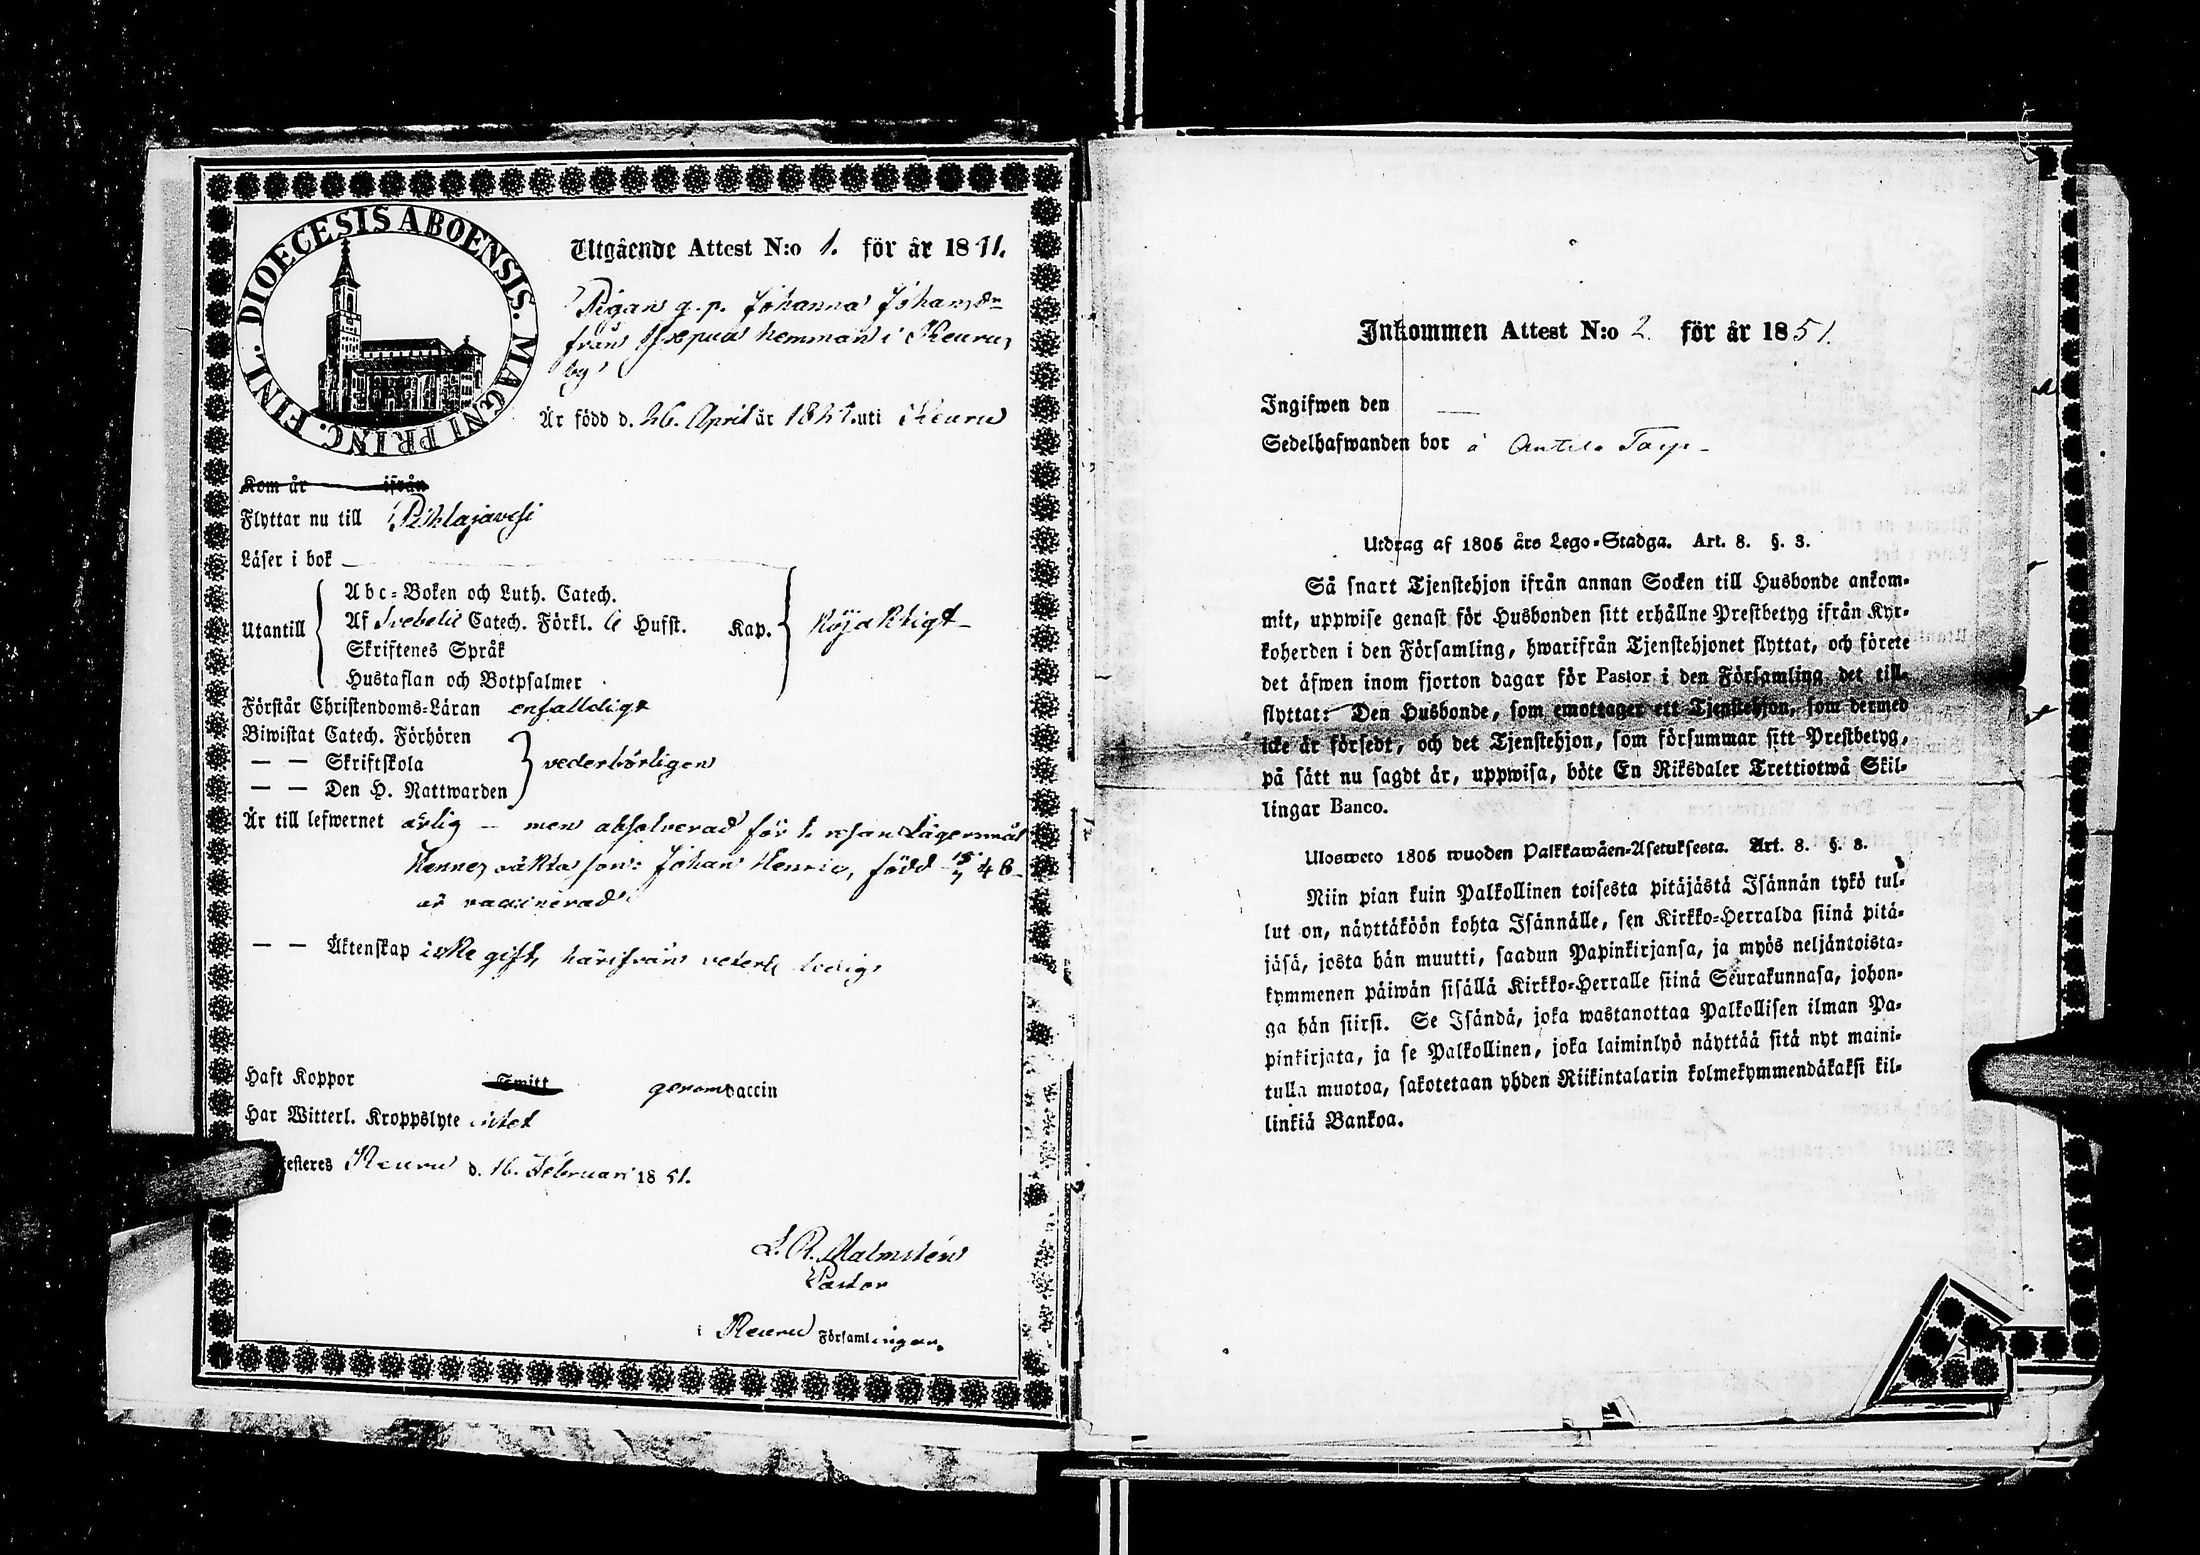 DIOECESIS ABOENSIS. MAGNI PRINC. FINL.
Utgående Attest N:o 1. för år 1851.
Pigan g. p. Johanna Johansdr
från hemman i Keuru
by
Är född d. 26. April år uti Keuru
Kom år ifrån
Flyttar nu till Pihlajavesi
Läser i bok
Utantill
Abc-Boken och Luth. Catech.
Af Svebelii Catech. Förkl. 6 Hufst. Kap.
Skriftenes Språk
Hustaflan och Botpsalmer
Nöjaktigt
Förstår Christendoms-Läran enfalldigt
Biwistat Catech. Förhören
— — Skriftskola
— — Den H. Nattwarden
vederbörligen
Är till lefwernet ärlig — men absolverad för 1. resan Lägersmål
Hennes oäkta son: Johan Henric, född 15/7 46
är vaccinerad
— — Äktenskap icke gift, härifrån ledig
Haft Koppor Smitt genom vaccin
Har Witterl. Kroppslyte intet
testeres Keuru d. 16. Februari 1851.
L. R. Malmstén
Pastor
i Keuru Församlingar.
Inkommen Attest N:o 2. för år 1851.
Ingifwen den —
Sedelhafwanden bor å Torp
Utdrag af 1805 års Lego-Stadga. Art. 8. §. 3.
Så snart Tjenstehjon ifrån annan Socken till Husbonde ankom-
mit, uppwise genast för Husbonden sitt erhållne Prestbetyg ifrån Kyr-
koherden i den Församling, hwarifrån Tjenstehjonet flyttat, och förete
det äfwen inom fjorton dagar för Pastor i den Församling det till-
flyttat: Den Husbonde, som emottager ett Tjenstehjon, som dermed
icke är försedt, och det Tjenstehjon, som försummar sitt Prestbetyg,
på sätt nu sagdt är, uppwisa, böte En Riksdaler Trettiotwå Skil-
lingar Banco.
Ulosweto 1805 wuoden Palkkawäen-Asetuksesta. Art. 8. §. 3.
Niin pian kuin Palkollinen toisesta pitäjästä Isännän tykö tul-
lut on, näyttäköön kohta Isännälle, sen Kirkko-Herralda siinä pitä-
jäsä, josta hän muutti, saadun Papinkirjansa, ja myös neljäntoista-
kymmenen päiwän sisällä Kirkko-Herralle siinä Seurakunnasa, johon-
ga hän siirsi. Se Isändä, joka wastanottaa Palkollisen ilman Pa-
pinkirjata, ja se Palkollinen, joka laiminlyö näyttää sitä nyt maini-
tulla muotoa, sakotetaan yhden Riikintalarin kolmekymmendäkaksi kil-
linkiä Bankoa.